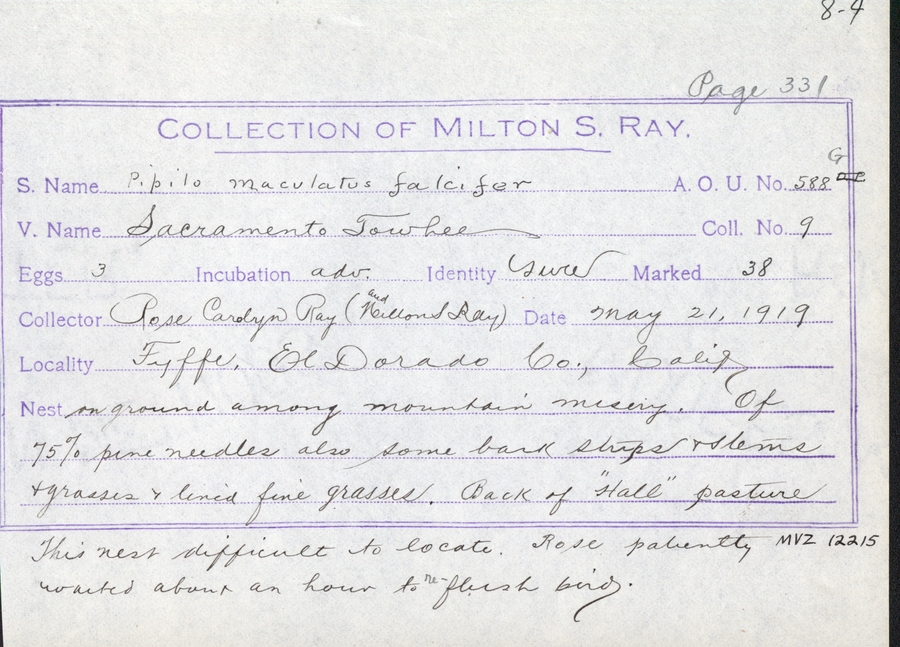 8-4
Page 331
COLLECTION OF MILTON S. RAY.
G
S. Name Pipilo maculatus falcifer A. O. U. No. 588
V. Name Sacramento Towhee Coll. No. 9
Eggs 3 Incubation adv. Identity Sure Marked 38
Collector Rose Carolyn Ray (and Milton S Ray) Date May 21, 1919
Locality Fyffe, El Dorado Co., Calif
Nest on ground among mountain misery. Of
75% pine needles also some bark strips & stems
& grasses & lined fine grasses. Back of "Hall" pasture
This nest difficult to locate. Rose patiently MVZ 12215
waited about an hour to re-flush bird.